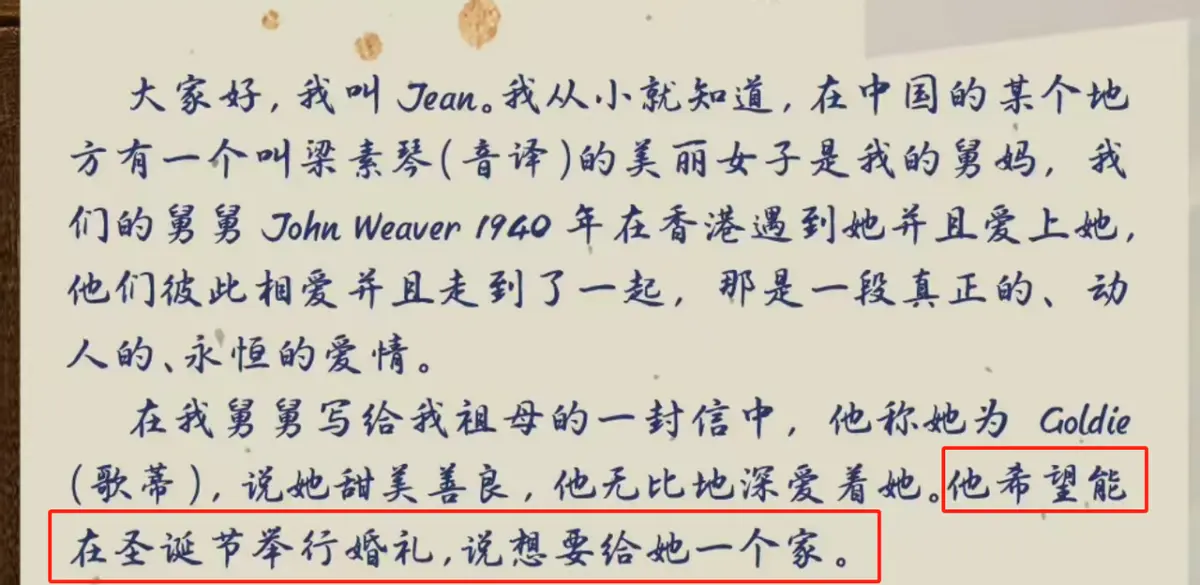 大家好,我叫 Jean。我从小就知道,在中国的某个地
方有一个叫梁素琴(音译)的美丽女子是我的舅妈,我
们的舅舅 John Weaver 1940 年在香港遇到她并且爱上她,
他们彼此相爱并且走到了一起,那是一段真正的、动
人的、永恒的爱情。
在我舅舅写给我祖母的一封信中,他称她为 Goldie
(歌蒂),说她甜美善良,他无比地深爱着她。他希望能
在圣诞节举行婚礼,说想要给她一个家。